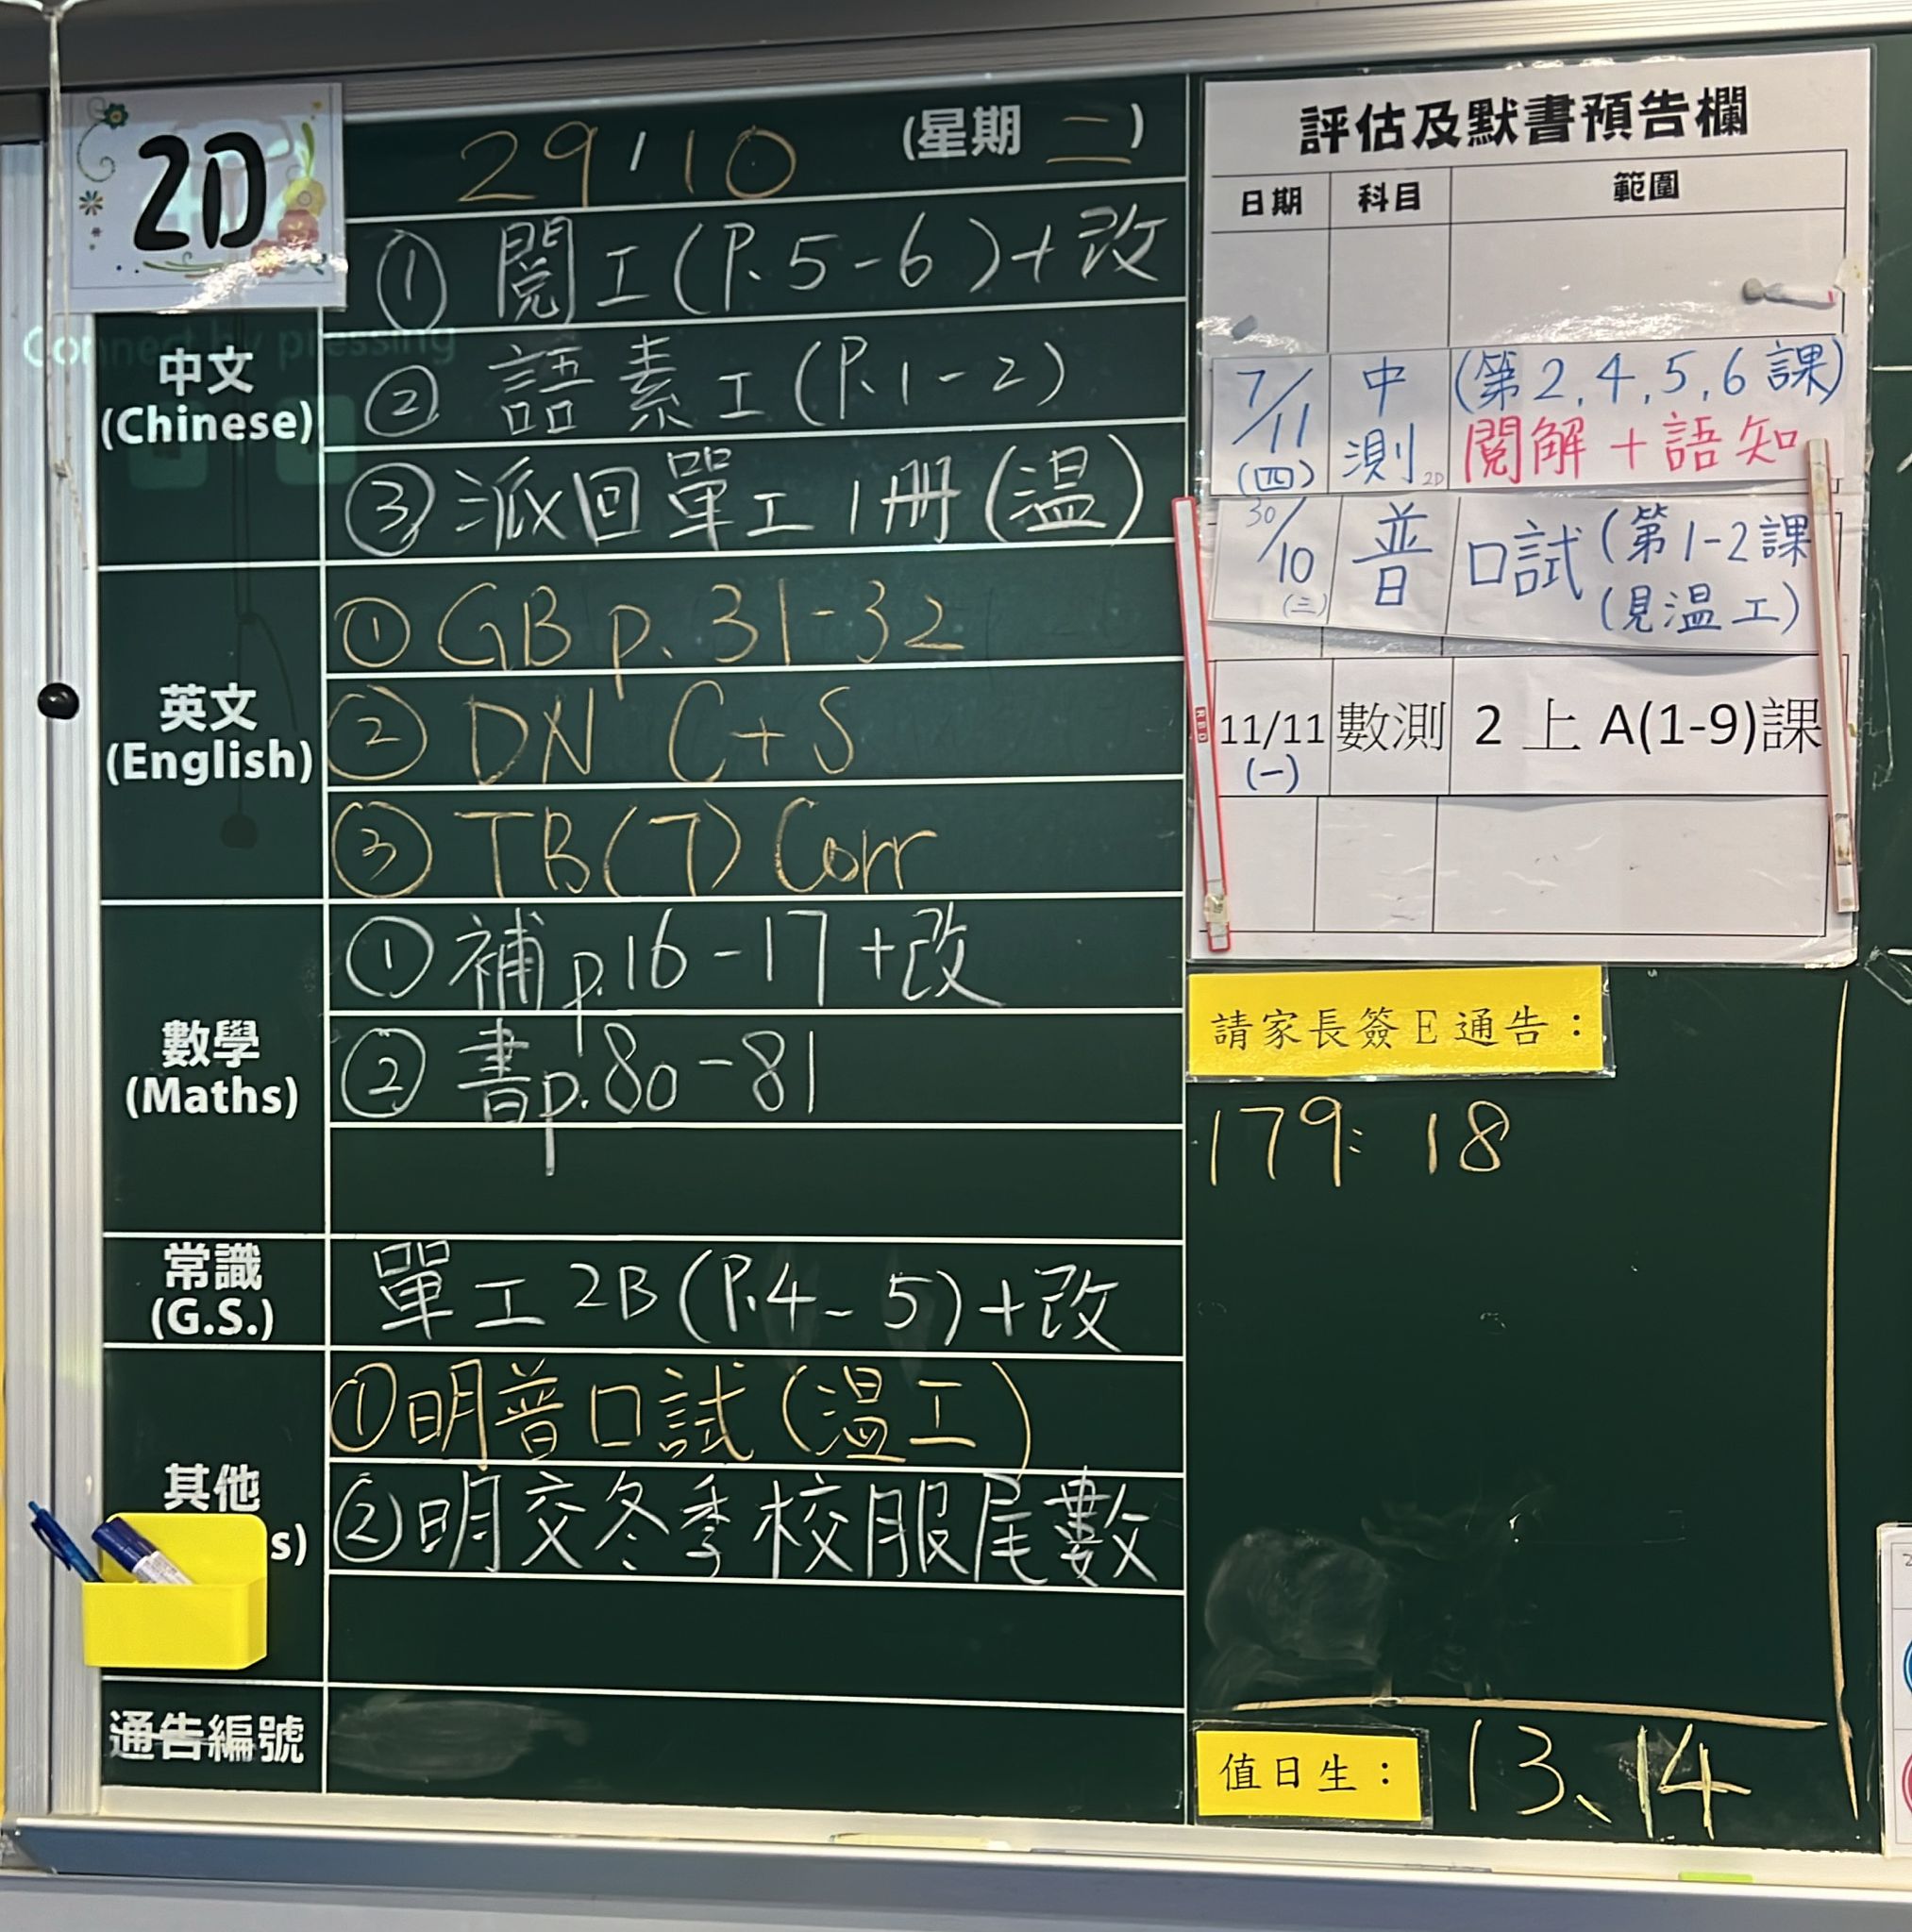 2D
29/10 (星期 二)
中文
(Chinese)
① 閱工(P.5-6)+改
② 語素工(P.1-2)
③ 派回單工1冊(溫)
英文
(English)
① GB p. 31-32
② DN C+S
③ TB(7) Corr
數學
(Maths)
① 補p.16-17+改
② 書p.80-81
常識
(G.S.)
單工2B(P.4-5)+改
其他
s)
①明普口試(溫工)
②明交冬季校服尾數
通告編號
評估及默書預告欄
日期 科目 範圍
7/11 (四) 中測 2D (第2,4,5,6課)
閱解+語知
30/10 (三) 普 口試(第1-2課
(見溫工)
11/11 (一) 數測 2上A(1-9)課
請家長簽E通告：
179: 18
值日生： 13、14
Connect by pressing